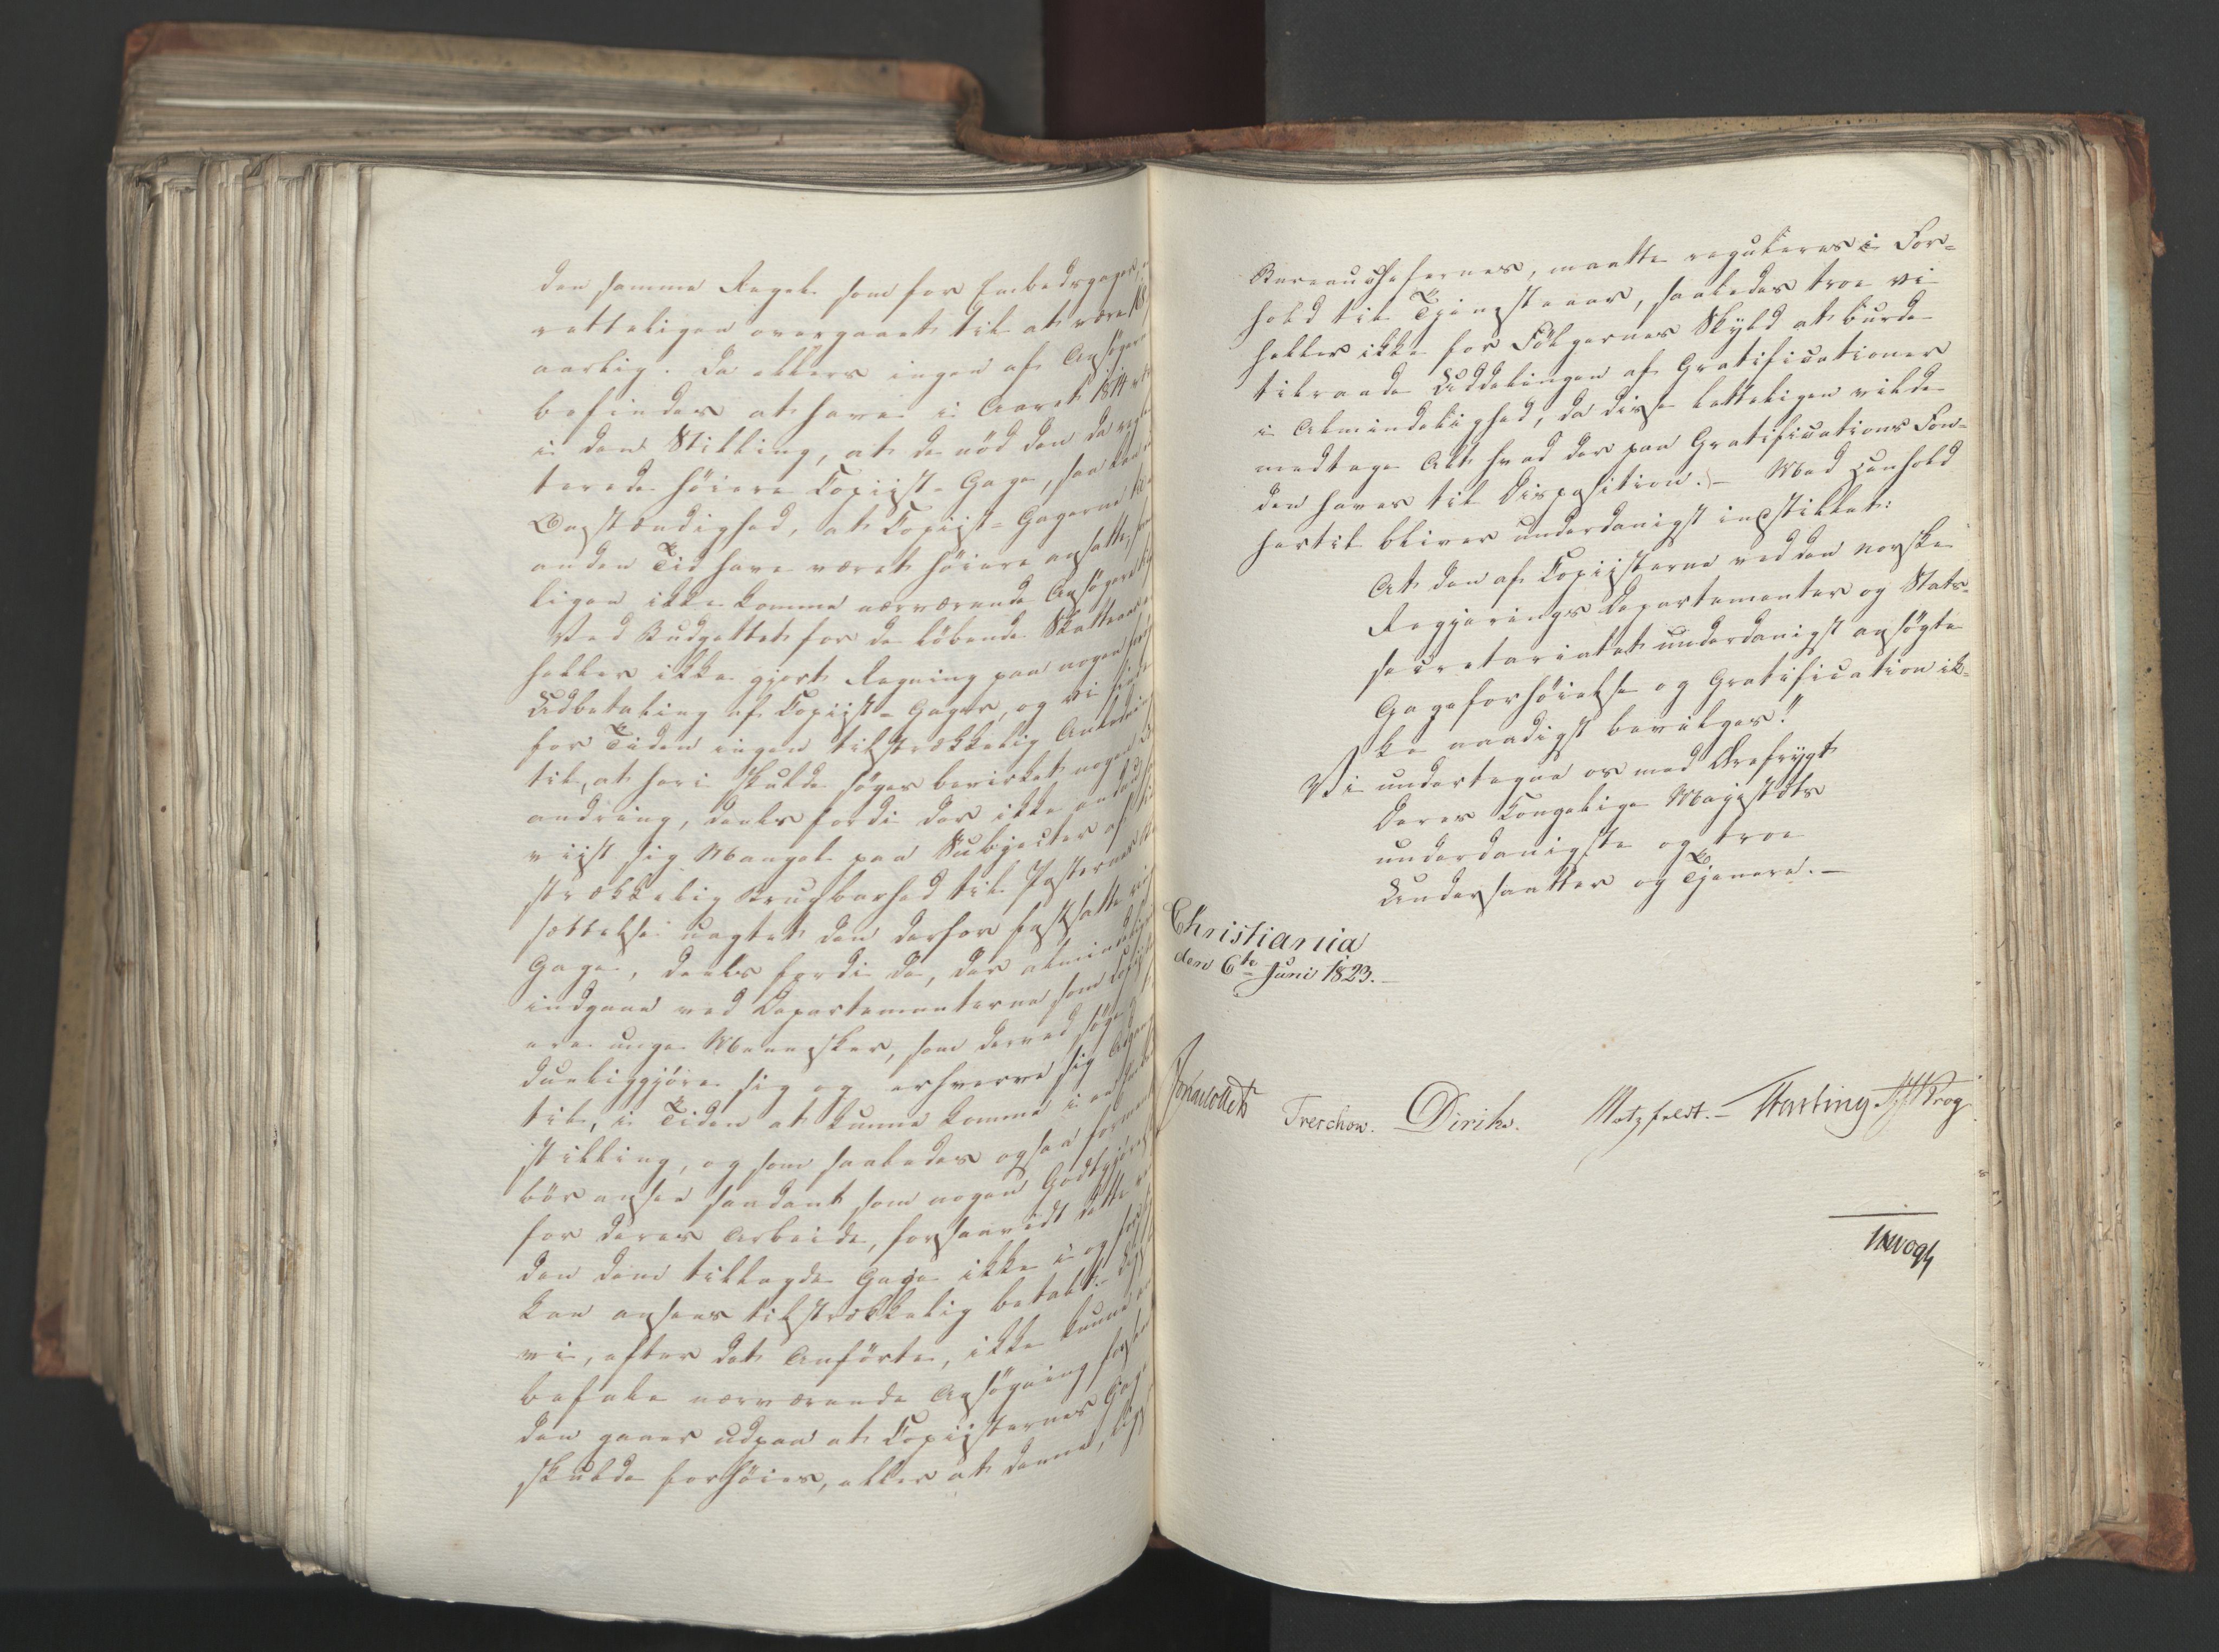 den samme Regel som for Embedsgager,
retteligen overgaaet til at være
aarlig. Da ellers ingen af Ansøgerne
befindes at have i Aaret 1814
i den Stilling, at de nød den da
terede høiere Copiist-Gage, saa kan
Omstændighed, at Copiist-Gagerne
anden Tid have været høiere ansatte,
ligen ikke komme nærværende Ansøgere
Ved Budgettet for de løbende Skatteaar
heller ikke gjort Regning paa nogen
Udbetaling af Copiist-Gager, og vi
for Tiden ingen tilstrækkelig Anledning
til, at heri skulde søges bevirket nogen
andring, deels fordi der ikke endnu
viist sig Mangel paa Subjecter af
strækkelig Brugbarhed til Posternes
sættelse uagtet den derfor fastsatte
Gage, deels fordi de, der almindeligen
indgaae ved Departementerne som
ere unge Mennesker, som derved søge
dueliggjøre sig og erhverve sig Adgang
til, i Tiden at kunne komme i
stilling, og som saaledes ogsaa
bør ansee saadant som nogen Godtgjørelse
for deres Arbeide, forsaavidt dette
den dem tillagde Gage ikke i og for
kan ansees tilstrækkelig betalt.
vi, efter det Anførte, ikke kunne
befale nærværende Ansøgning
den gaaer udpaa at Copiisternes Gage
skulde forhøies, eller at denne,
Bureauchefernes, maatte reguleres i For-
hold til Tjenesteaar, saaledes troe vi
heller ikke for Følgernes Skyld at burde
tilraade Uddelingen af Gratificationer
i Almindelighed, da disse letteligen vilde
medtage Alt hvad der paa Gratifications Fon-
den haves til Disposition. – Med Henhold
hertil bliver underdanigst indstillet:
At den af Copiisterne ved den norske
Regjerings Departementer og Stats-
secretariatet underdanigst ansøgte
Gageforhøielse og Gratification ik-
ke naadigst bevilges."
Vi undertegne os med Ærefrygt
Deres Kongelige Majestæts
underdanigste og troe
Undersaatter og Tjenere. –
Christiania
den 6te Juni 1823. –
Jonas Collett Treschow. Diriks. Motzfeldt. – Fasting Krog